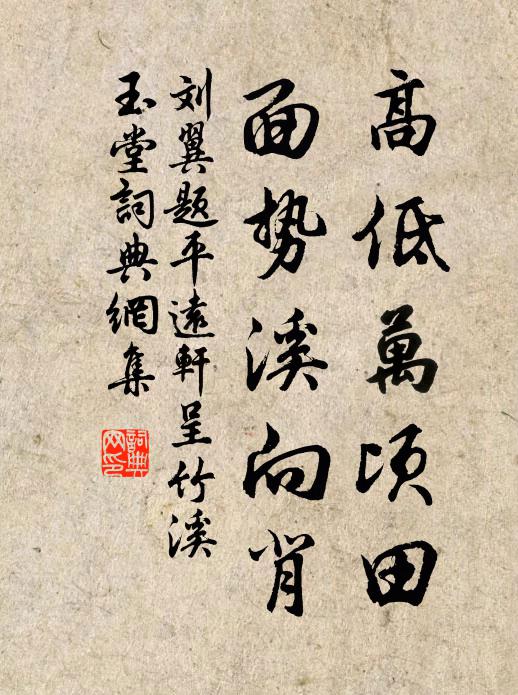 高低萬頃田
面势溪向背
刘翼题平遠軒呈竹溪
玉堂詞典網集
詞典
网印